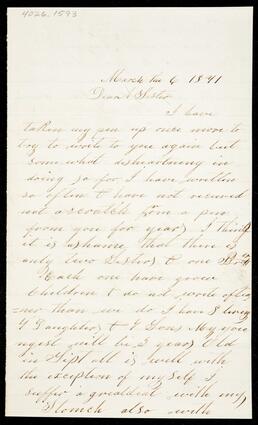 4026.1593
March the 6 1871
Dear Sister
I have
taken my pen up once more to
try to write to you again but
some what disheartening in
doing so for I have written
so often & have not received
not a scratch from a pen
from you for years I think
it is a shame that there is
only two Sisters & one
Each one have grown
Children & do not write often
=ner than we do I have 8 living
4 Daughters & 4 Sons My you
ngest will be 2 years Old
in Sept all is well with
the exception of my self I
suffer a great deal with my
Stomch also with